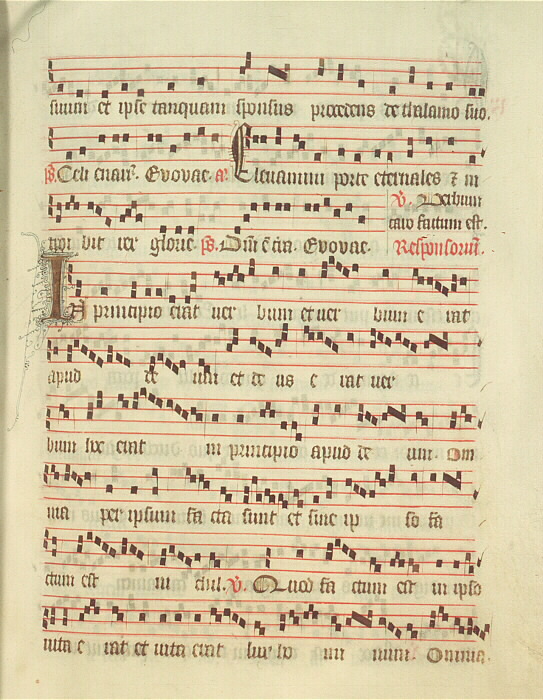 suum et ipse tanquam sponsus procedens de thalamo suo.
ps. Celi enarr. Evovae. a. Elevamini porte eternales et in
v. Verbum
caro factum est.
troi bit rex glorie. ps. Dñi ē t̄ra. Evovae. Responsoriū.
In principio erat ver bum et ver bum e rat
apud de um et de us e rat ver
bum hoc erat in principio apud de um. Om
nia per ipsum fa cta sunt et sine ip so fa
ctum est ni chil. v. Quod fa ctum est in ipso
vita e rat et vita erat lux ho mi num. Omnia.